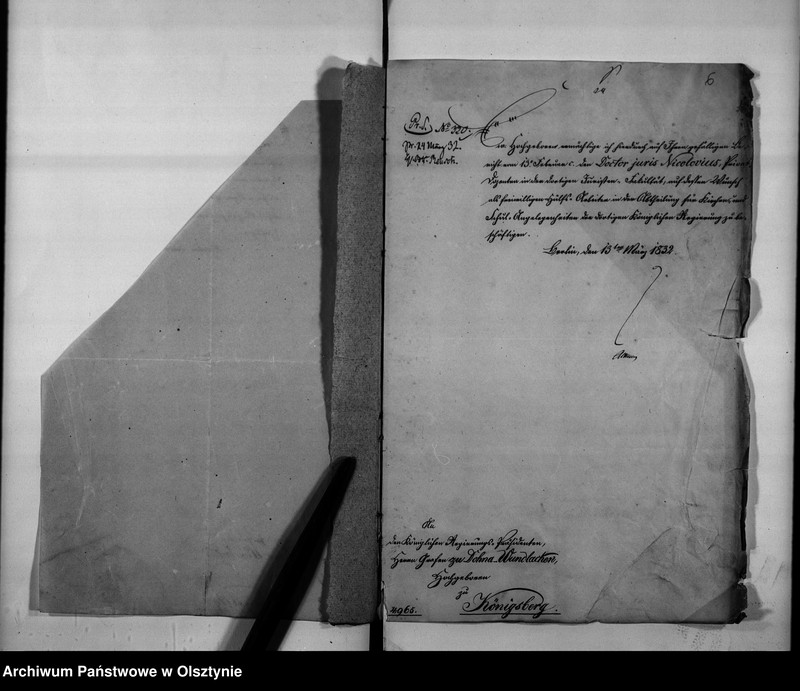 6
Pr. L. No 330.
pr. 24 März 32.
Ew. Hochgeboren ermächtige ich hierdurch auf Ihren gefälligen Be-
richt vom 13 Februar c. den Doctor juris Nicolovius, Privat
Dozenten in der dortigen Juristen-Fakultät, auf dessen Wunsch
als freiwilligen Hülfs-Arbeiter in der Abtheilung für Kirchen- und
Schul-Angelegenheiten der dortigen Königlichen Regierung zu be-
schäftigen.
Berlin, den 13ten März 1832.
An
den Königlichen Regierungs-Präsidenten,
Herrn Grafen zu Dohna Wundlacken,
Hochgeboren
zu
Königsberg.
4965.
Archiwum Państwowe w Olsztynie